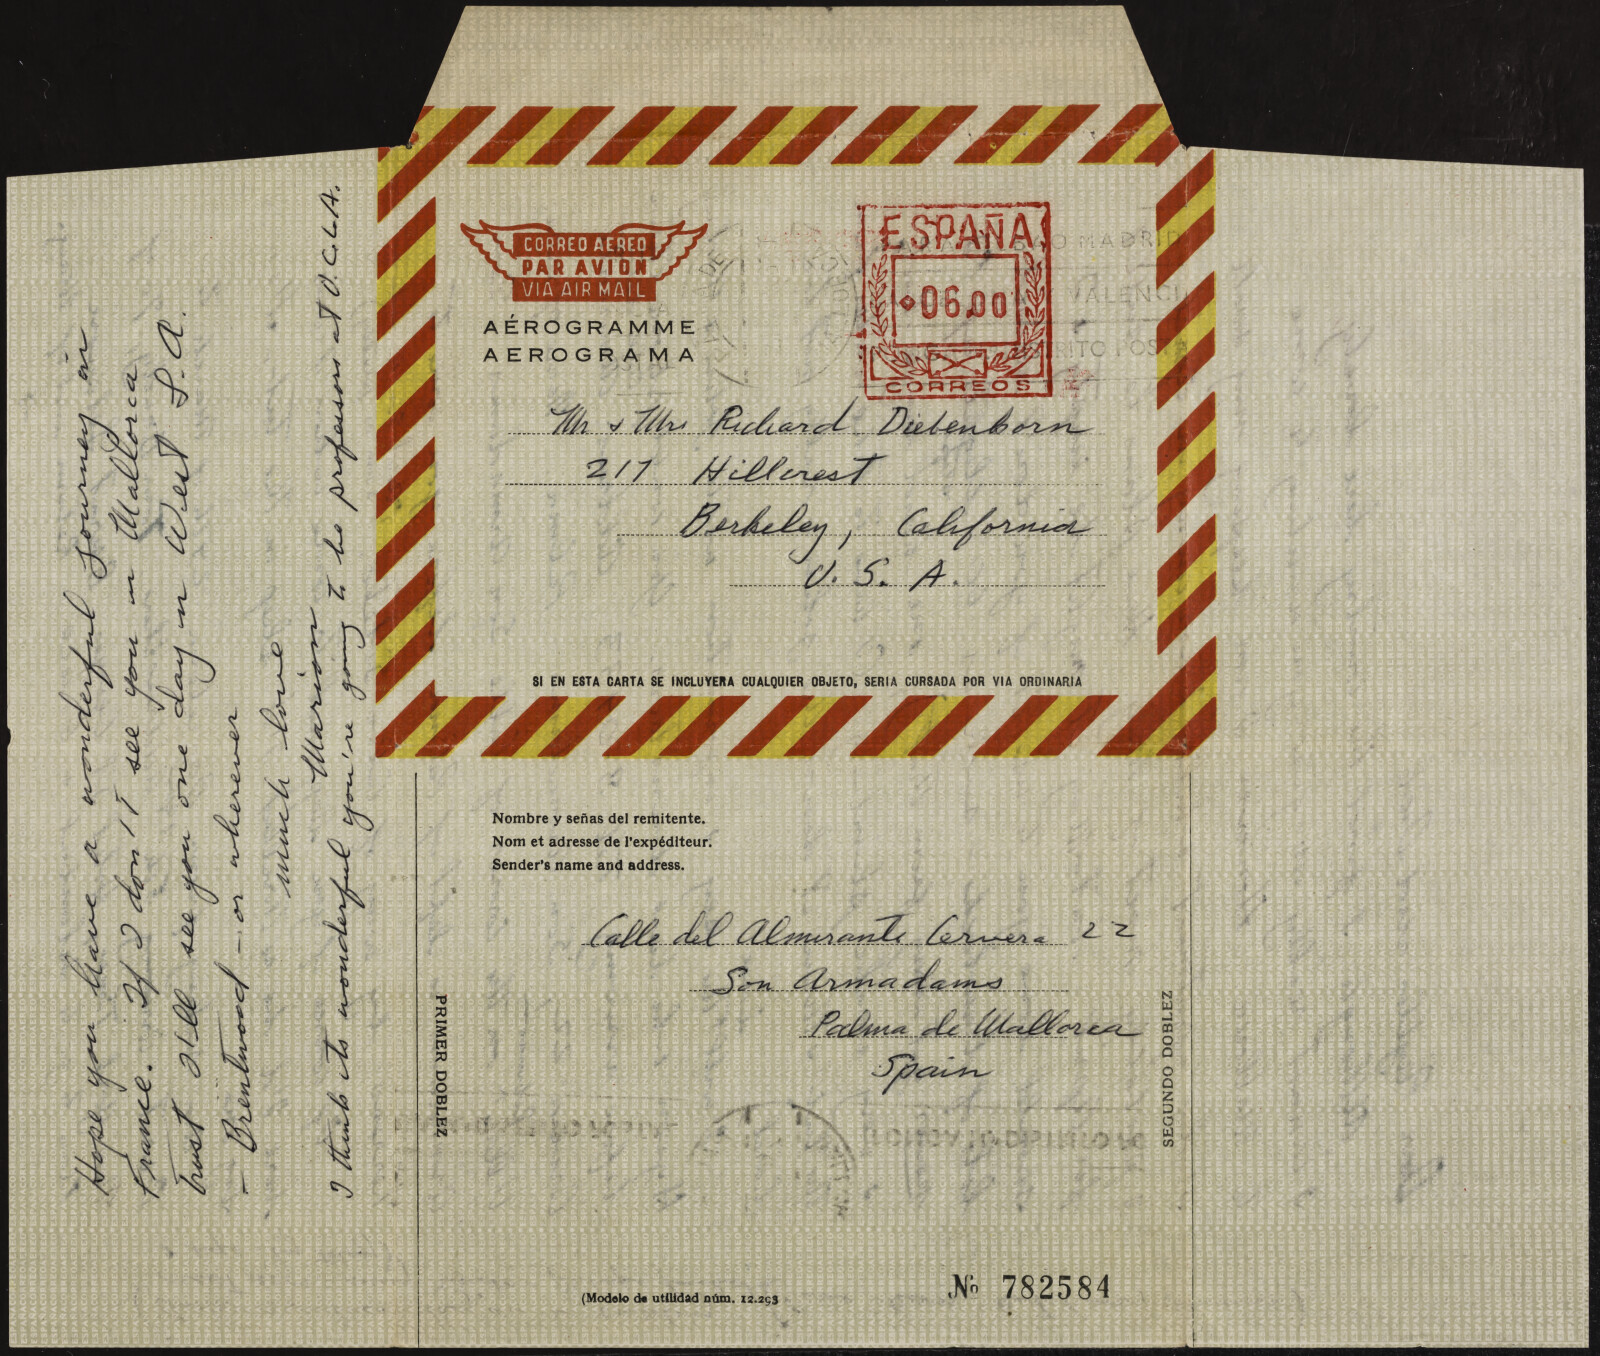 CORREO AEREO
PAR AVION
VIA AIR MAIL
AÉROGRAMME
AEROGRAMA
ESPAÑA
06,00
CORREOS
MADRID
VALENCI
Mr & Mrs Richard Diebenborn
217 Hillcrest
Berkeley, California
U. S. A.
SI EN ESTA CARTA SE INCLUYERA CUALQUIER OBJETO, SERIA CURSADA POR VIA ORDINARIA
Nombre y señas del remitente.
Nom et adresse de l'expéditeur.
Sender's name and address.
Calle del Almirante Cervera 22
Son Armadams
Palma de Mallorca
Spain
PRIMER DOBLEZ
SEGUNDO DOBLEZ
(Modelo de utilidad núm. 12.293
No 782584
Hope you have a wonderful journey in
France. If I don't see you in Mallorca
trust I'll see you one day in West L.A.
– Brentwood – or wherever
much love
Marion
I think its wonderful you're going to be professor at U.C.L.A.